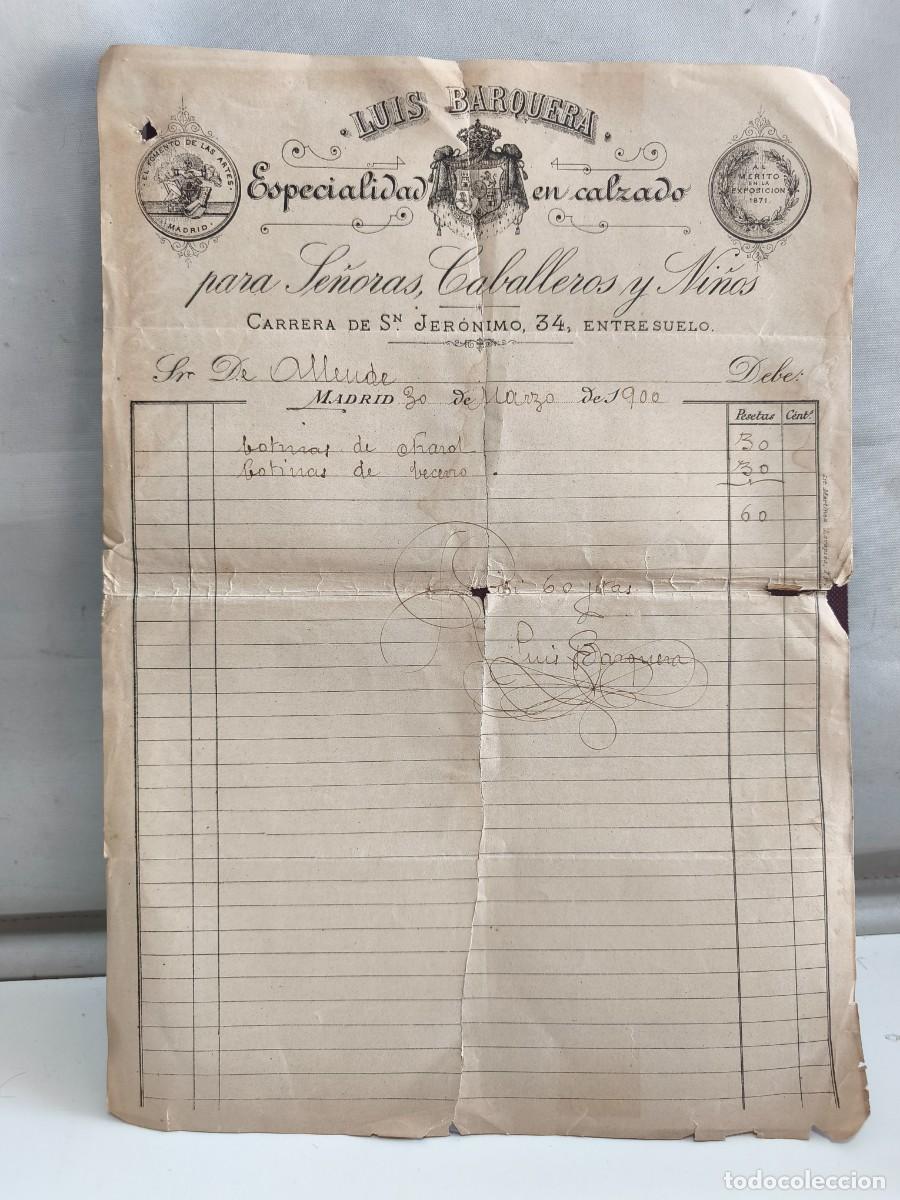 LUIS BARQUERA
EL FOMENTO DE LAS ARTES
MADRID.
AL MÉRITO EN LA EXPOSICION 1871.
Especialidad en calzado
para Señoras, Caballeros y Niños
CARRERA DE Sⁿ. JERÓNIMO, 34, ENTRESUELO.
Sr. D. Allende Debe:
MADRID 30 de Marzo de 1900
Pesetas Cént.ˢ
botinas de charol 30
botinas de becerro 30
60
60 ptas
Luis Barquera
todocoleccion